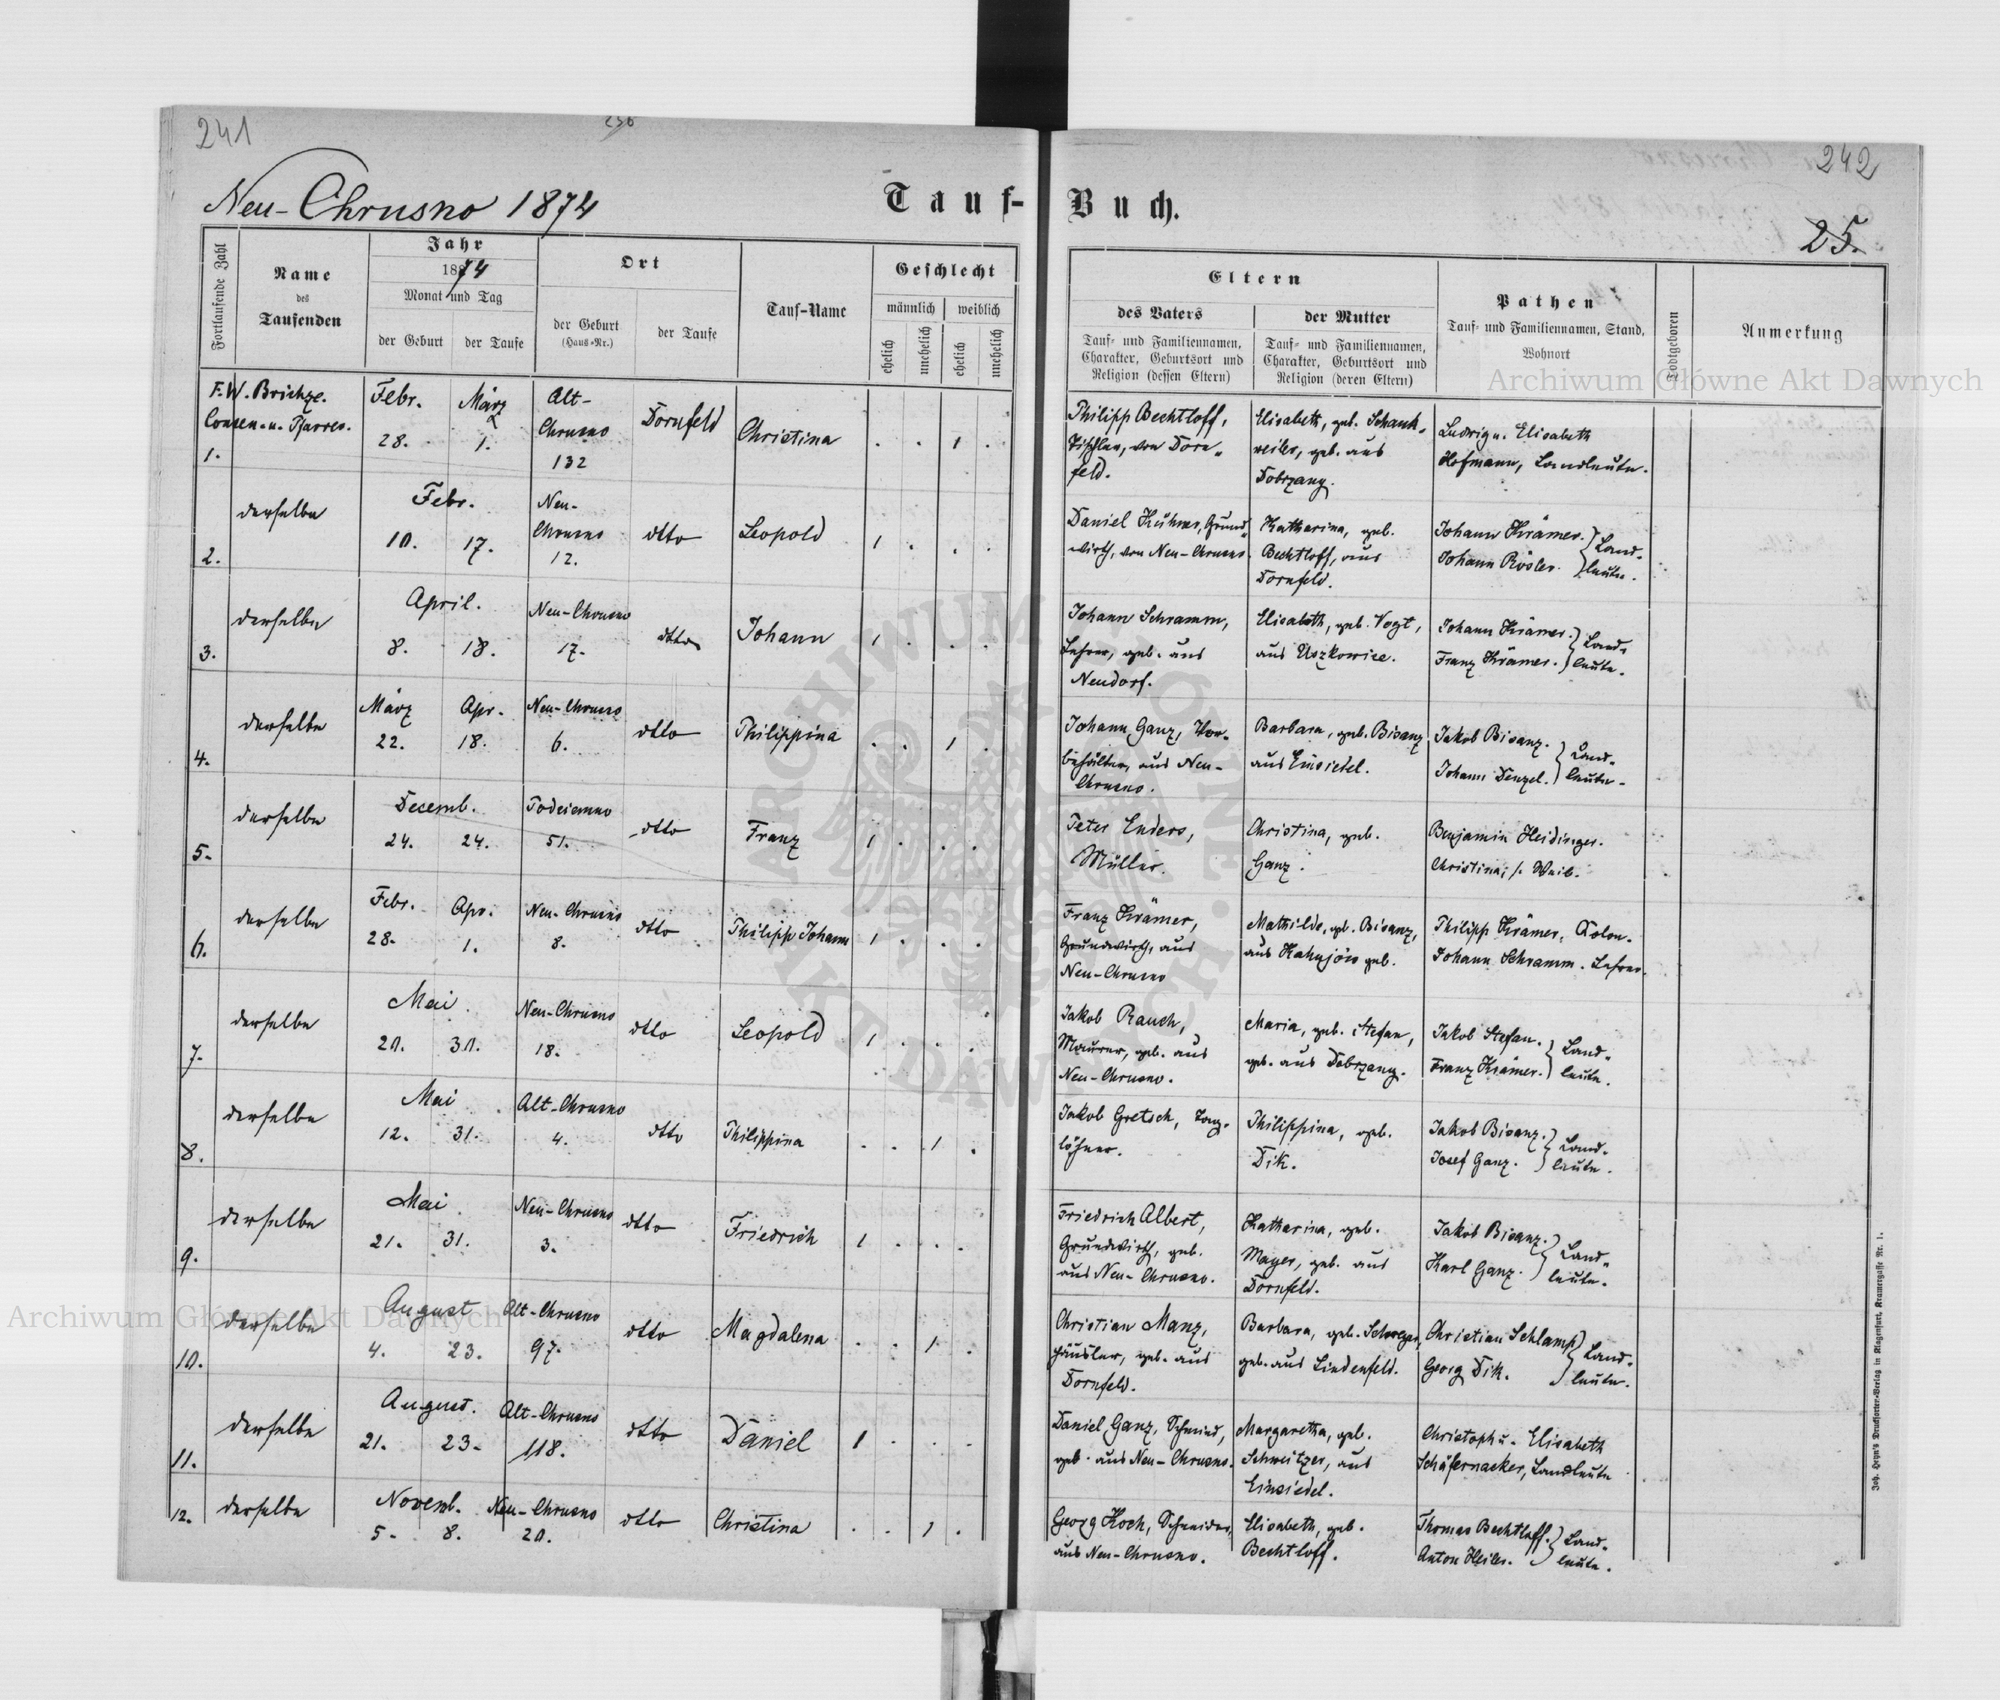 241
236
242
Neu-Chrusno 1874
Tauf-Buch.
25.
Fortlaufende Zahl
Name
des
Taufenden
Jahr
1874
Monat und Tag
der Geburt
der Taufe
Ort
der Geburt
(Haus-Nr.)
der Taufe
Tauf-Name
Geschlecht
männlich
weiblich
ehelich
unehelich
ehelich
unehelich
Eltern
des Vaters
Tauf- und Familiennamen,
Charakter, Geburtsort und
Religion (dessen Eltern)
der Mutter
Tauf- und Familiennamen,
Charakter, Geburtsort und
Religion (deren Eltern)
Pathen
Tauf- und Familiennamen, Stand,
Wohnort
Todtgeboren
Anmerkung
1.
F. W. Brichze.
Consen. u. Pfarrer.
Febr.
28.
März
1.
Alt-
Chrusno
132
Dornfeld
Christina
. . 1 .
Philipp Bechtloff,
Tischler, von Dorn-
feld.
Elisabeth, geb. Schank-
weiler, geb. aus
Dobrzany.
Ludwig u. Elisabeth
Hofmann, Landleute.
2.
derselbe
Febr.
10. 17.
Neu-
Chrusno
12.
dtto
Leopold
1 . . .
Daniel Kühner, Grund-
wirth, von Neu-Chrusno.
Katharina, geb.
Bechtloff, aus
Dornfeld.
Johann Krämer.
Johann Rösler.
Land-
leute.
3.
derselbe
April.
8. 18.
Neu-Chrusno
17.
dtto
Johann
1 . . .
Johann Schramm,
Lehrer, geb. aus
Neudorf.
Elisabeth, geb. Vogt,
aus Uszkowice.
Johann Krämer.
Franz Krämer.
Land-
leute.
4.
derselbe
März Apr.
22. 18.
Neu-Chrusno
6.
dtto
Philippina
. . 1 .
Johann Ganz, Vor-
behälter, aus Neu-
Chrusno.
Barbara, geb. Bisanz
aus Einsiedel.
Jakob Bisanz.
Johann Denzel.
Land-
leute.
5.
derselbe
Decemb.
24. 24.
Podciemno
51.
dtto
Franz
1 . . .
Peter Enders,
Müller.
Christina, geb.
Ganz.
Benjamin Heidinger.
Christina, s. Weib.
6.
derselbe
Febr. Apr.
28. 1.
Neu-Chrusno
8.
dtto
Philipp Johann
1 . . .
Franz Krämer,
Grundwirth, aus
Neu-Chrusno
Mathilde, geb. Bisanz,
aus Kahujów geb.
Philipp Krämer, Kolon.
Johann Schramm. Lehrer.
7.
derselbe
Mai
21. 31.
Neu-Chrusno
18.
dtto
Leopold
1 . . .
Jakob Rauch,
Maurer, geb. aus
Neu-Chrusno.
Maria, geb. Stefan,
geb. aus Dobrzany.
Jakob Stefan.
Franz Krämer.
Land-
leute.
8.
derselbe
Mai
12. 31.
Alt-Chrusno
4.
dtto
Philippina
. . 1 .
Jakob Gretsch, Tag-
löhner.
Philippina, geb.
Dik.
Jakob Bisanz.
Josef Ganz.
Land-
leute.
9.
derselbe
Mai
21. 31.
Neu-Chrusno
3.
dtto
Friedrich
1 . . .
Friedrich Albert,
Grundwirth, geb.
aus Neu-Chrusno.
Katharina, geb.
Mayer, geb. aus
Dornfeld.
Jakob Bisanz.
Karl Ganz.
Land-
leute.
10.
derselbe
August
4. 23.
Alt-Chrusno
97.
dtto
Magdalena
. . 1 .
Christian Manz,
Häusler, geb. aus
Dornfeld.
Barbara, geb.
geb. aus Lindenfeld.
Christian Schlamp
Georg Dik.
Land-
leute.
11.
derselbe
August.
21. 23.
Alt-Chrusno
118.
dtto
Daniel
1 . . .
Daniel Ganz, Schmied,
geb. aus Neu-Chrusno.
Margaretha, geb.
Schweitzer, aus
Einsiedel.
Christoph u. Elisabeth
Schäfernacker, Landleute
12.
derselbe
Novemb.
5. 8.
Neu-Chrusno
20.
dtto
Christina
. . 1 .
Georg Koch, Schneider,
aus Neu-Chrusno.
Elisabeth, geb.
Bechtloff.
Thomas Bechtloff.
Anton Heiler.
Land-
leute.
Joh. Heyn's Drucksorten-Verlag in Klagenfurt, Kramergasse Nr. 1.
Archiwum Główne Akt Dawnych
Archiwum Główne Akt Dawnych
ARCHIWUM GŁÓWNE AKT DAWNYCH